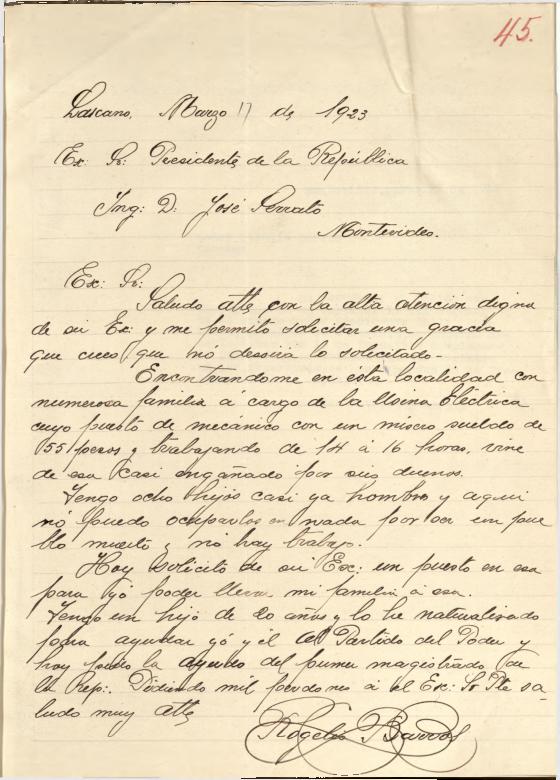 45.
Lascano, Marzo 17 de 1923
Ex: Sr: Presidente de la República
Ing: D: José Serrato
Montevideo.
Ex: Sr:
Saludo atte con la alta atención digna
de su Ex: y me permito solicitar una gracia
que creo que nó desoirá lo solicitado-
Encontrandome en ésta localidad con
numerosa familia á cargo de la Usina Eléctrica
cuyo puesto de mecánico con un misero sueldo de
55 pesos y trabajando de 14 á 16 horas, vine
de esa casi engañado por sus dueños.
Tengo ocho hijos casi ya hombres y aqui
nó puedo ocuparlos en nada por ser un pue
blo muerto y nó hay trabajo.
Hoy solicito de su Ex: un puesto en esa
para yó poder llevar mi familia á esa.
Tengo un hijo de 20 años y lo he naturalizado
para ayudar yó y él al Partido del Poder y
hoy pido la ayuda del primer magistrado de
la Rep:. Pidiendo mil perdones á el Ex: Sr Pte sa-
ludo muy atte
Rogelio Barros